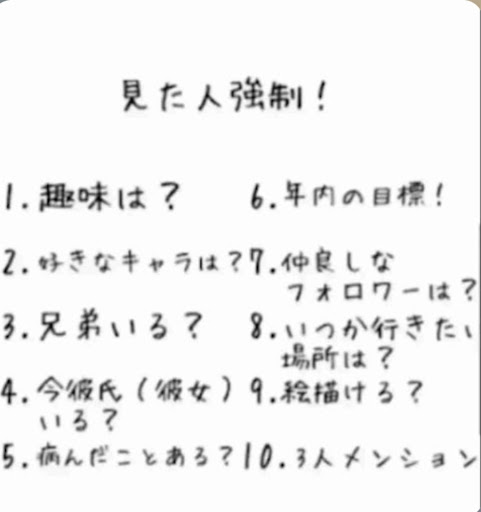 見た人強制！
1. 趣味は？
2. 好きなキャラは？
3. 兄弟いる？
4. 今彼氏（彼女）
いる？
5. 病んだことある？
6. 年内の目標！
7. 仲良しな
フォロワーは？
8. いつか行きたい
場所は？
9. 絵描ける？
10. 3人メンション